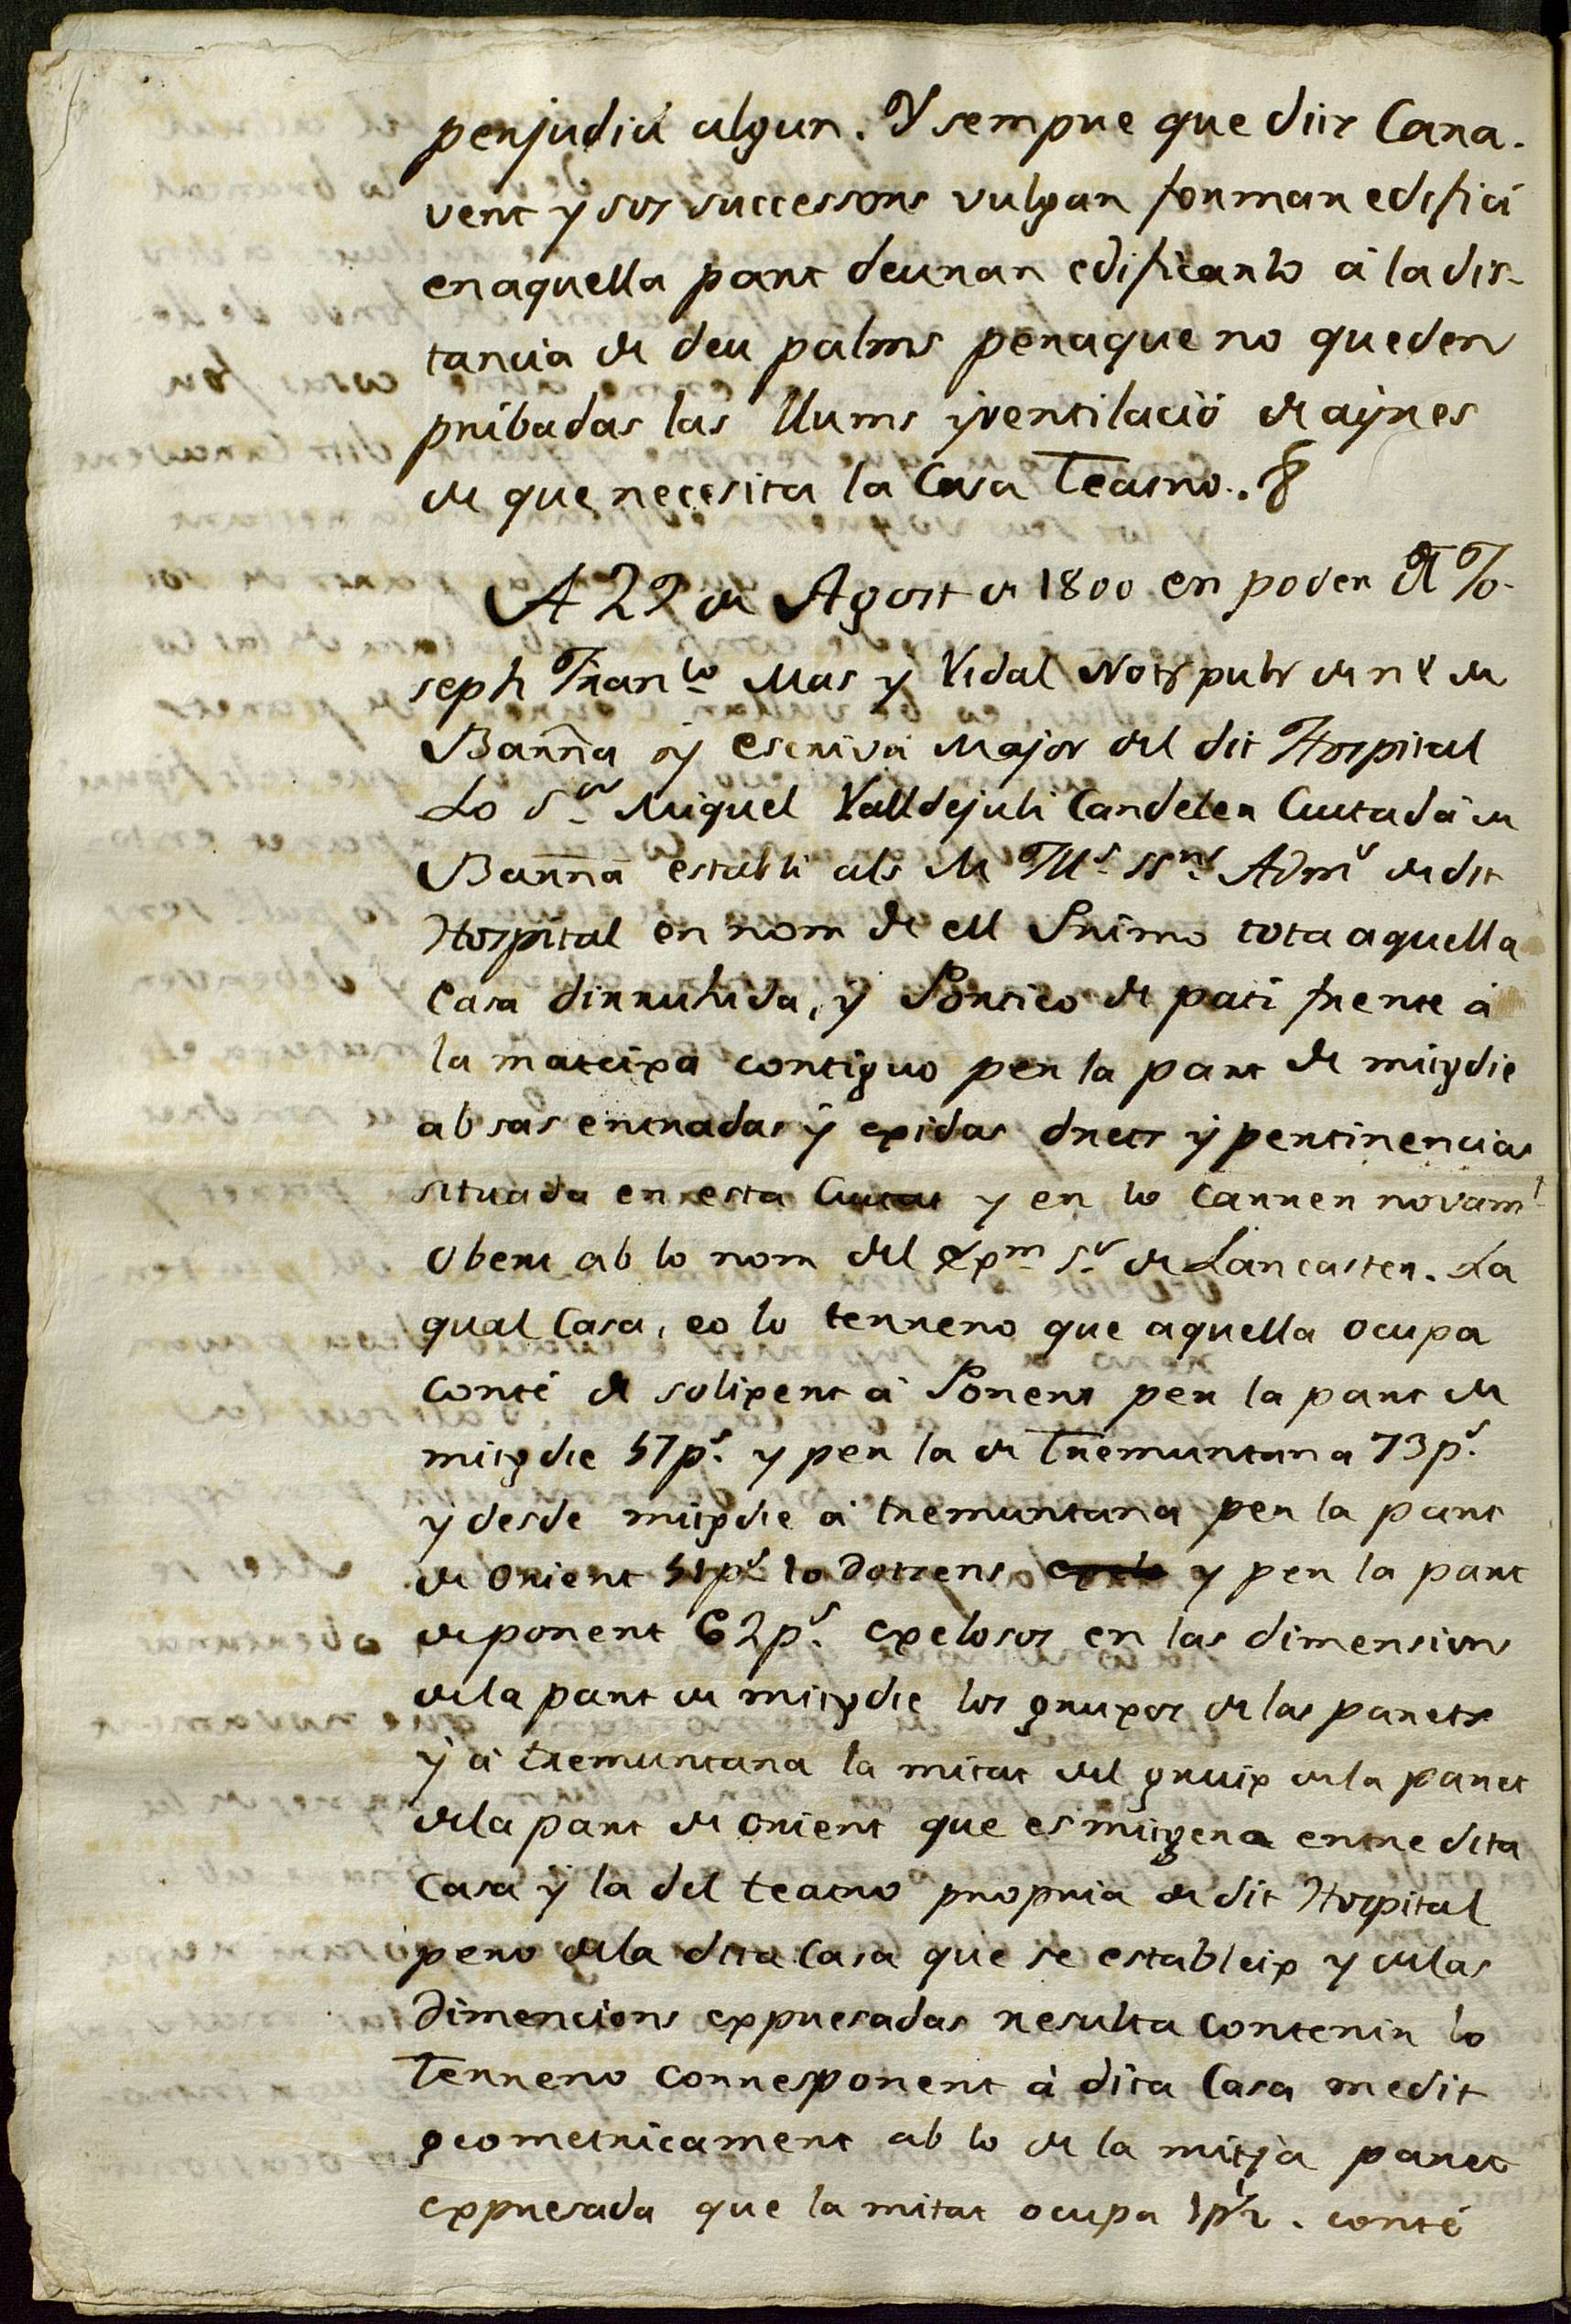 perjudici algun. Y sempre que dits Cana-
vent y sos successors vulgan formar edifici
en aquella part deuran edificarlo à la dis-
tancia de deu palms peraque no queden
pribadas las llums y ventilació de ayres
de que necesita la Casa Teatro.
A 22 de Agost de 1800 en poder de Jo-
seph Fran.co Mas y Vidal Not pub de n.º de
Barña y escrivá Major del dit Hospital
Lo S.or Miquel Valldejuli Candeler Ciutadá de
Barña establi als M Ill.s SS.rs Adm.s de dit
Hospital en nom de ell Primo tota aquella
Casa dirruhida, y Portico de pati frente à
la mateixa contiguo per la part de migdie
ab sas entradas y exidas drets y pertinencias
situada en esta Ciutat y en lo Carrer novam.t
Obert ab lo nom del Exm S.r de Lancaster. La
qual Casa, eo lo terreno que aquella ocupa
Conté de solixent à Ponent per la part de
migdie 57 p.s y per la de tremuntana 73 p.s
y desde migdie à tremuntana per la part
de Orient 51 p.s lo dotzens y per la part
de ponent 62 p.s exclosos en las dimensions
de la part de migdie los gruxos de las parets
y à tremuntana la mitat del gruix de la paret
de la part de Orient que es mitgera entre dita
Casa y la del teatro propria de dit Hospital
pero de la dita Casa que se estableix y de las
Dimencions expresadas resulta contenir lo
Terreno Corresponent à dita Casa medit
geometricament ab lo de la mitja paret
expresada que la mitat ocupa conté